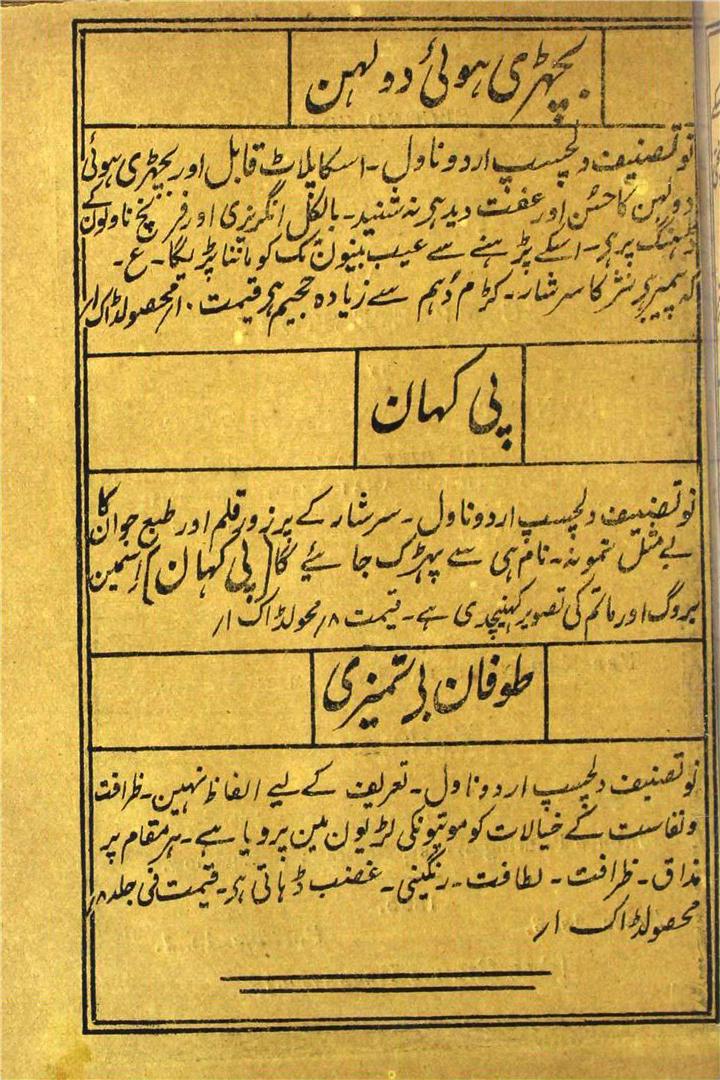 بچھڑی ہوئی دولہن
نوتصنیف دلچسپ اردو ناول۔ اسکا پلاٹ قابل اور بچھڑی ہوئی
دولہن کا حسن اور عفت دید ہی نہ شنید۔ بالکل انگریزی اور فرنچ ناولون کے
ڈھنگ پر ہی۔ اسکے پڑہنے سے عیب بینون تک کو ماننا پڑیگا۔ ع۔
کہ پیمبر ہی نثر کا سرشار۔ کڑم دُہم سے زیادہ حجیم ہی قیمت ۱۰؍ محصولڈاک ۱؍
پی کہان
نوتصنیف دلچسپ اردو ناول۔ سرشار کے پرزور قلم اور طبع جوان کا
بے مثل نمونہ۔ نام ہی سے پہڑک جائیے گا (پی کہان) اسمین
بروگ اور ماتم کی تصویر کہینچدی ہے۔ قیمت ۸؍ محولڈاک ۱؍
طوفان بی تمیزی
نوتصنیف دلچسپ اردو ناول۔ تعریف کے لیے الفاظ نہین۔ ظرافت
ونفاست کے خیالات کو موتیونکی لڑیون مین پرویا ہے۔ ہر مقام پر
مذاق۔ ظرافت۔ لطافت۔ رنگینی۔ غضب ڈہاتی ہی۔ قیمت فی جلد ۸؍
محصولڈاک ۱؍